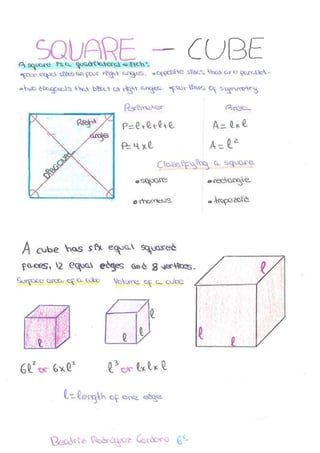 SQUARE - CUBE
A square is a quadrilateral which:
•four equal sides •four right angles. •opposite sides that are parallel.
•two diagonals that bisect at right angles. •four lines of symmetry
Perimeter
Area
Right
angles
DIAGONAL
P=l+l+l+l
A=lxl
P=4xl
A=l²
Classifying a square
•square
•rectangle
•rhombus
•trapezoid
A cube has six equal squared
faces, 12 equal edges and 8 vertices.
Surface area of a cube
Volume of a cube
l
l
l
l
l
l
l
6l² or 6xl²
l³ or lxlxl
l=length of one edge
Beatriz Rodríguez Cordero 6º